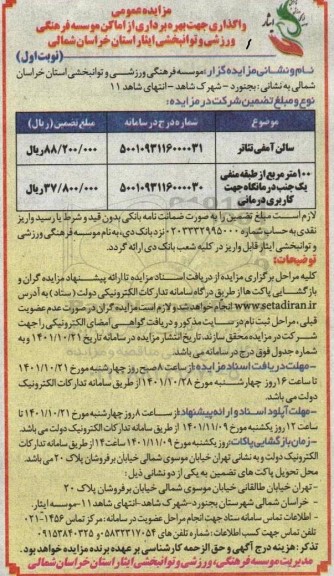 مزایده عمومی
واگذاری جهت بهره برداری از اماکن موسسه فرهنگی
ورزشی و توانبخشی ایثار استان خراسان شمالی
ایثار
(نوبت اول)
نام و نشانی مزایده گزار: موسسه فرهنگی ورزشی و توانبخشی استان خراسان
شمالی به نشانی: بجنورد - شهرک شاهد - انتهای شاهد ۱۱
نوع و مبلغ تضمین شرکت در مزایده:
موضوع شماره درج در سامانه مبلغ تضمین (ریال)
سالن آمفی تئاتر ۵۰۰۱۰۹۳۱۱۶۰۰۰۰۳۱ ۸۸/۲۰۰/۰۰۰ ریال
۱۰۰ متر مربع از طبقه منفی
یک جنب درمانگاه جهت
کاربری درمانی
۵۰۰۱۰۹۳۱۱۶۰۰۰۰۳۰ ۳۷/۸۰۰/۰۰۰ ریال
لازم است مبلغ تضمین را به صورت ضمانت نامه بانکی بدون قید و شرط یا رسید واریز
نقدی به حساب شماره ۰۲۰۳۳۳۲۹۹۵۰۰۰ نزد بانک دی، به نام موسسه فرهنگی ورزشی
و توانبخشی ایثار قابل واریز در کلیه شعب بانک دی ارائه گردد.
توضیحات:
کلیه مراحل برگزاری مزایده از دریافت اسناد مزایده تا ارائه پیشنهاد مزایده گران و
بازگشایی پاکت ها از طریق درگاه سامانه تدارکات الکترونیکی دولت (ستاد) به آدرس
www.setadiran.ir انجام خواهد شد و لازم است مزایده گران در صورت عدم عضویت
قبلی، مراحل ثبت نام در سایت مذکور و دریافت گواهی امضای الکترونیکی را جهت
شرکت در مزایده محقق سازند. تاریخ انتشار مزایده در سامانه تاریخ ۱۴۰۱/۱۰/۲۱ به
شماره جدول فوق درج در سامانه می باشد.
-مهلت دریافت اسناد مزایده: از ساعت ۸ صبح روز چهارشنبه مورخ ۱۴۰۱/۱۰/۲۱
تا ساعت ۱۶ روز چهارشنبه مورخ ۱۴۰۱/۱۰/۲۸ از طریق سامانه تدارکات الکترونیک
دولت می باشد.
-مهلت آپلود اسناد و ارائه پیشنهاد: از ساعت ۸ روز چهارشنبه مورخ ۱۴۰۱/۱۰/۲۱ تا
ساعت ۱۲ روز یکشنبه مورخ ۱۴۰۱/۱۱/۰۹ از طریق سامانه تدارکات الکترونیک دولت می باشد.
-زمان بازگشایی پاکات: روز یکشنبه مورخ ۱۴۰۱/۱۱/۰۹ ساعت ۱۴ از طریق سامانه تدارکات
الکترونیک دولت و به نشانی تهران خیابان موسوی شمالی خیابان برفروشان پلاک ۲۰ می باشد.
محل تحویل پاکت های تضمین به یکی از دو نشانی ذیل:
- تهران خیابان طالقانی خیابان موسوی شمالی خیابان برفروشان پلاک ۲۰
- خراسان شمالی شهرستان بجنورد- شهرک شاهد- انتهای شاهد ۱۱- موسسه ایثار.
- اطلاعات تماس سامانه ستاد جهت انجام مراحل عضویت در سامانه: مرکز تماس ۱۴۵۶-۰۲۱
تلفن تماس جهت کسب اطلاعات: شماره تلفن های ۰۵۸۳۲۳۱۷۰۵۴ و ۰۹۱۵۳۸۴۰۳۲۵
تذکر: هزینه درج آگهی و حق الزحمه کارشناسی بر عهده برنده مزایده خواهد بود.
مدیریت موسسه فرهنگی، ورزشی و توانبخشی ایثار استان خراسان شمالی